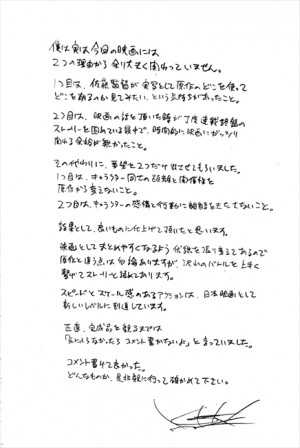 僕は実は今回の映画には
2つの理由から全く大きく関わっていません。
1つ目は、佐藤監督が実写として原作のどこを使って
どこを削るのか見てみたい、という気持ちがあったこと。
2つ目は、映画の話を頂いた時が丁度連載終盤の
ストーリーを固めている最中で、時間的に映画にガッツリ
関わる余裕が無かったこと。
その代わりに、要望を2つだけ出させてもらいました。
1つ目は、キャラクター同士の距離と関係性を
原作から変えないこと。
2つ目は、キャラクターの感情と行動に齟齬をきたさないこと。
結果として、良いものに仕上げて頂いたと思います。
映画としてまとめやすくなるよう伏線を張り変えてあるので
原作と違う点は勿論ありますが、沢山のバトルを上手く
繋げてストーリーを組んであります。
スピードとスケール感のあるアクションは、日本映画として
新しいレベルに到達しています。
正直、完成品を観るまでは
「気に入らなかったらコメント書かないよ」と言っていました。
コメント書けて良かった。
どんなものか、是非観に行って確かめて下さい。